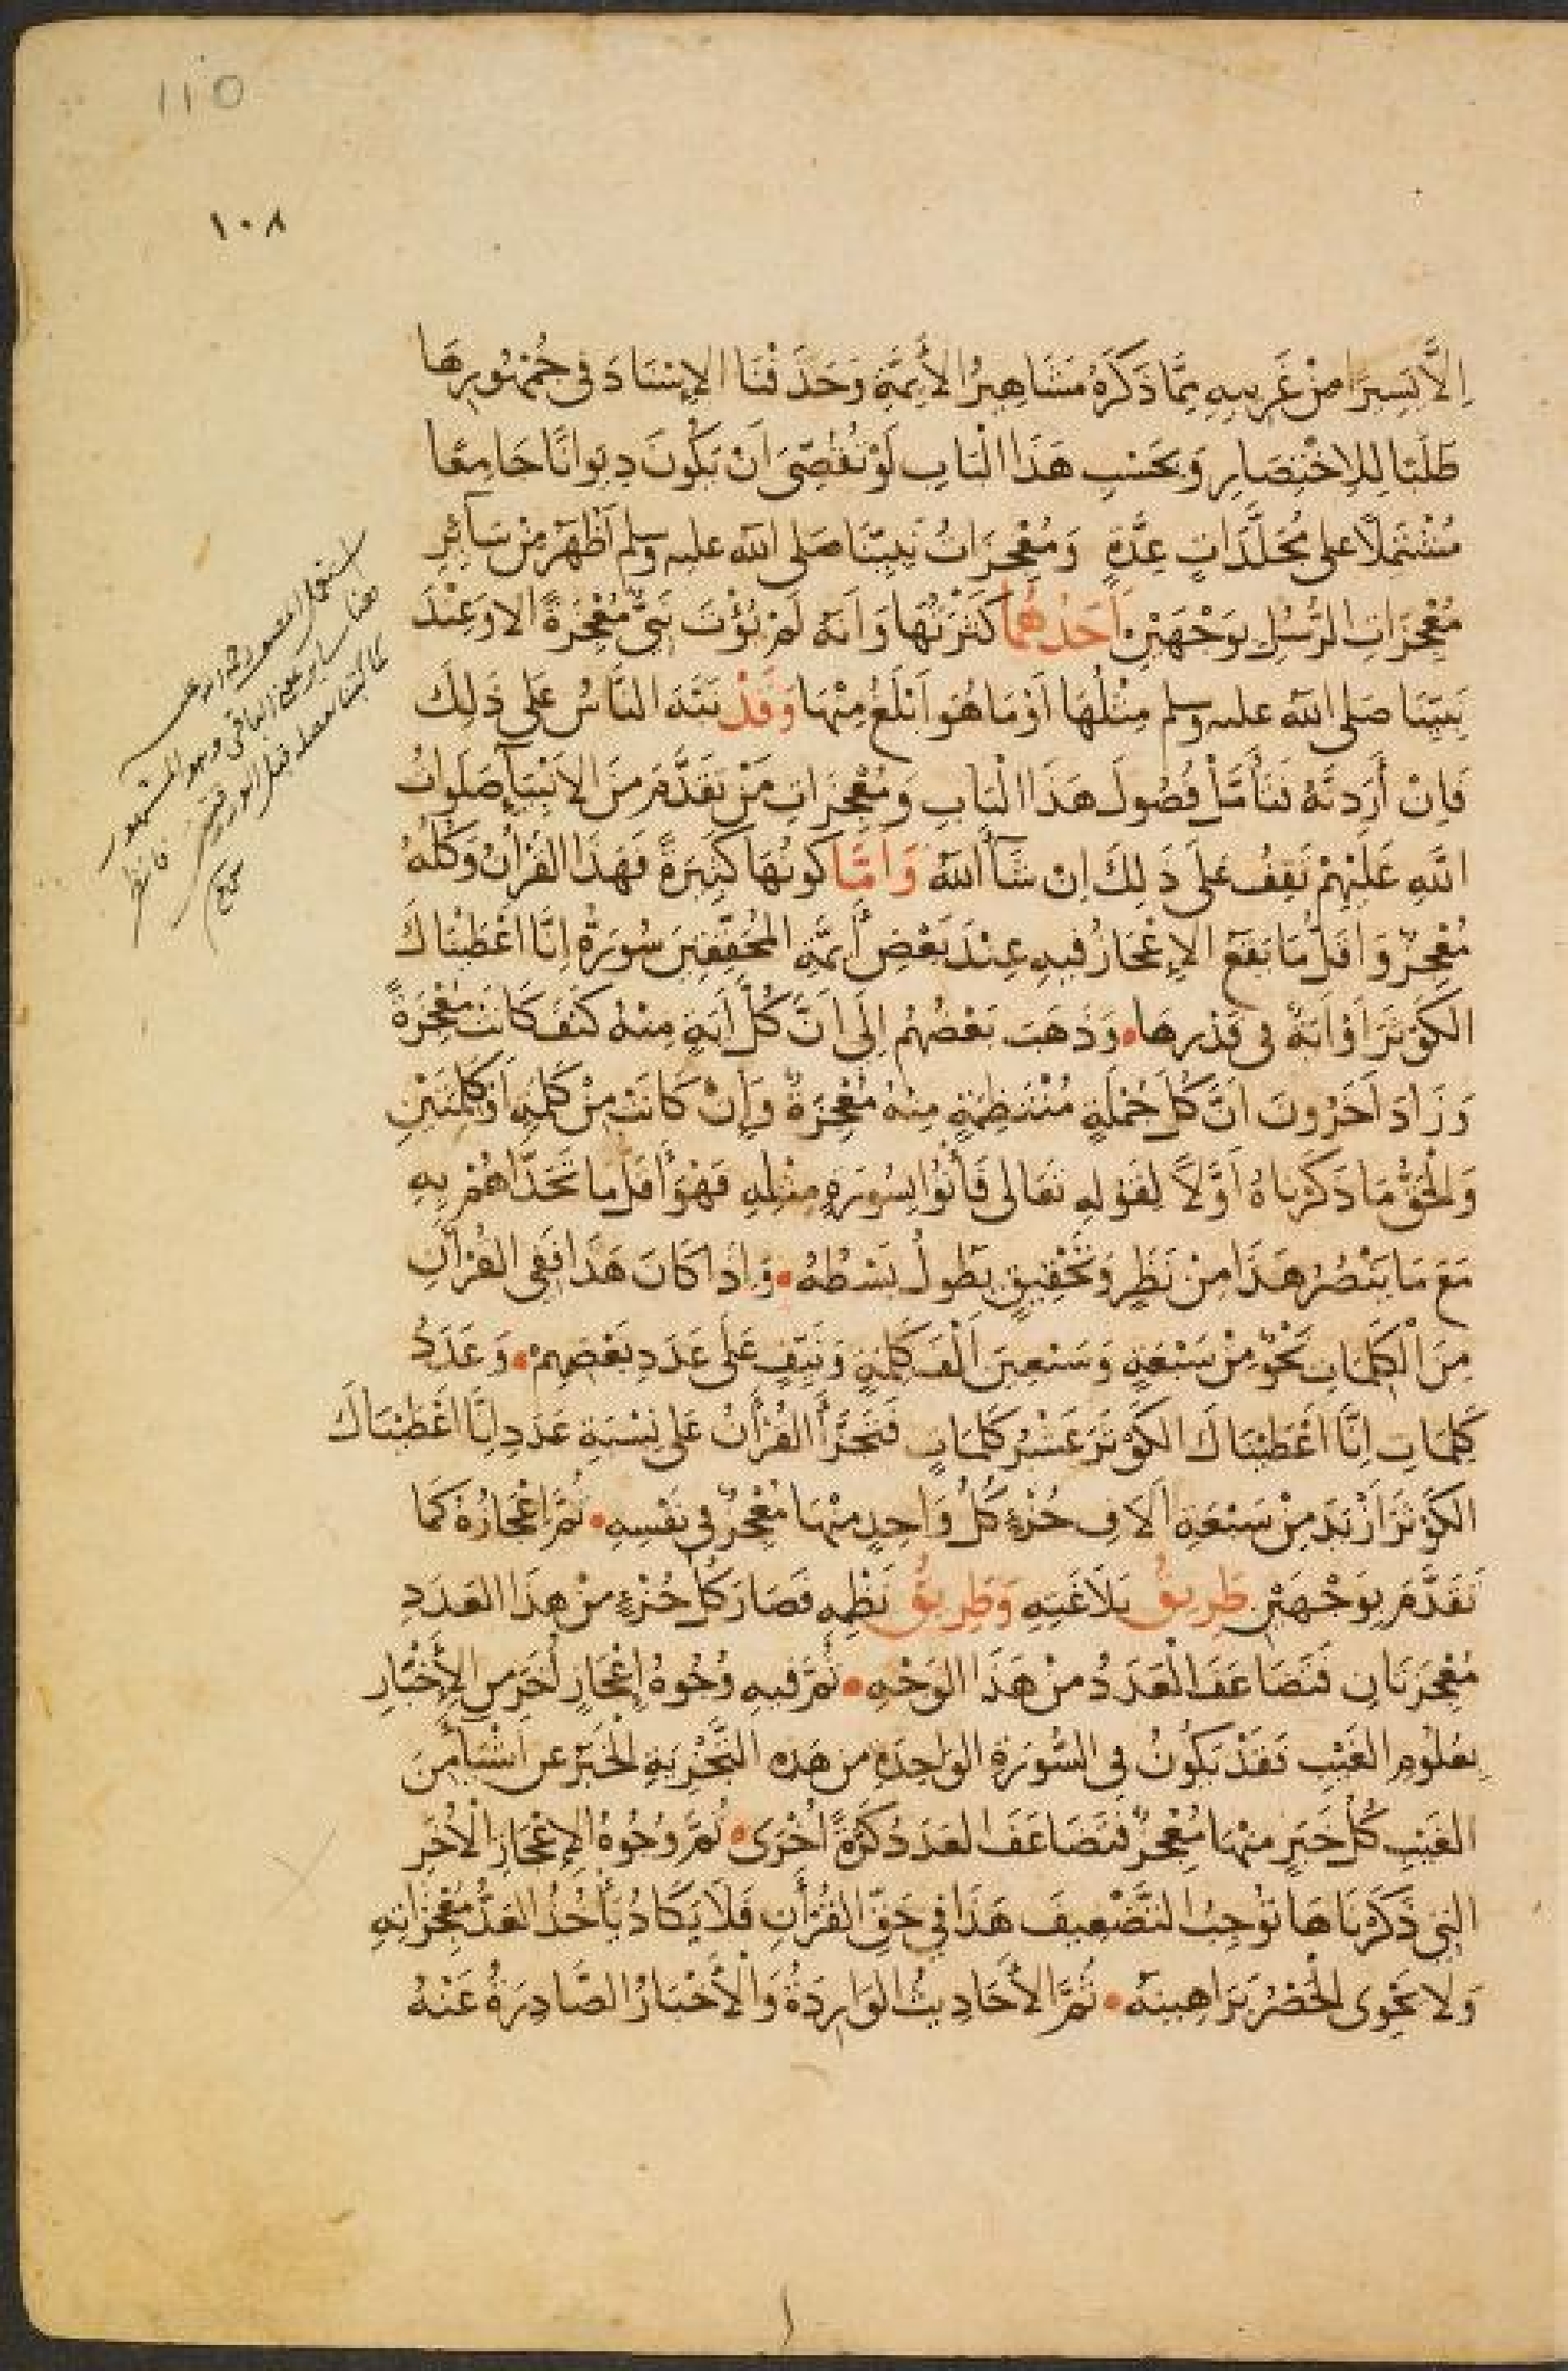 110
١٠٨
اِلَّا يَسِيرًا مِنْ غَرِيبِهِ مِمَّا ذَكَرَهُ مَشَاهِيرُ الأَئِمَّةِ وَحَذَفْنَا الإِسْنَادَ فِى جُمْهُورِهَا
طَلَبًا لِلِاخْتِصَارِ وَبِحَسْبِ هَذَا الْبَابِ لَوْ تُقُصِّىَ اَنْ يَكُونَ دِيوَانًا جَامِعًا
مُشْتَمِلًا على مُجَلَّدَاتٍ عِدَّةٍ وَمُعْجِزَاتُ نَبِيِّنَا صَلى الله عليه وسلم أَظْهَرُ مِنْ سَآئِرِ
مُعْجِزَاتِ الرُّسُلِ بِوَجْهَيْنِ اَحَدُهُمَا كَثْرَتُهَا وَاَنَّهُ لَمْ يُؤْتَ نَبِىٌّ مُعْجِزَةً الا وَعِنْدَ
نَبِيِّنَا صَلى الله عليه وسلم مِثْلُهَا اَوْ مَا هُوَ اَبْلَغُ مِنْهَا وَقَدْ نَبَّهَ النَّاسُ عَلَى ذَلِكَ
فَاِنْ أَرَدتَهُ فَتَأَمَّلْ فُصُولَ هَذَا الْبَابِ وَمُعْجِزَاتِ مَنْ تَقَدَّمَ مِنَ الاَنْبِيَآ صَلَوَاتُ
اللَّهِ عَلَيْهِمْ تَقِفُ عَلَى ذَلِكَ اِنْ شَآءَ اللَّهُ وَاَمَّا كَوْنُهَا كَثِيرَةً فَهَذَا القُرْآنُ وَكُلُّهُ
مُعْجِزٌ وَاَقَلُّ مَا يَقَعُ الإِعْجَازُ فِيهِ عِنْدَ بَعْضِ أَئِمَّةِ المُحَقِّقِينَ سُورَةُ اِنَّا اَعْطَيْنَاكَ
الكَوْثَرَ اَوْ اٰيَةٌ فِى قَدْرِهَا • وَذَهَبَ بَعْضُهُمْ اِلَى اَنَّ كُلَّ اٰيَةٍ مِنْهُ كَيْفَ كَانَتْ مُعْجِزَةٌ
وَزَادَ اٰخَرُونَ اَنَّ كُلَّ جُمْلَةٍ مُنْتَظِمَةٍ مِنْهُ مُعْجِزَةٌ وَاِنْ كَانَتْ مِنْ كَلِمَةٍ اَوْ كَلِمَتَيْنِ
وَالْحَقُّ مَا ذَكَرْنَاهُ اَوَّلًا لِقَوْلِهِ تَعَالى فَأْتُوا بِسُورَةٍ مِثْلِهِ فَهُوَ أَقَلُّ مَا تَحَدَّاهُمْ بِهِ
مَعَ مَا يَنْصُرُ هَذَا مِنْ نَظَرٍ وَتَحْقِيقٍ يَطُولُ بَسْطُهُ • وَاِذَا كَانَ هَذَا فَفِى القُرْاٰنِ
مِنَ الْكَلِمَاتِ نَحْوٌ مِنْ سَبْعَةٍ وَسَبْعِينَ اَلْفَ كَلِمَةٍ وَنَيِّفٍ عَلَى عَدَدِ بَعْضِهِمْ • وَعَدَدُ
كَلِمَاتِ اِنَّا اَعْطَيْنَاكَ الكَوْثَرَ عَشْرُ كَلِمَاتٍ فَتَجَزَّأَ القُرْآنُ عَلى نِسْبَةِ عَدَدِ اِنَّا اَعْطَيْنَاكَ
الكَوْثَرَ اَزْيَدَ مِنْ سَبْعَةِ اٰلَافِ جُزْءٍ كُلُّ وَاحِدٍ مِنْهَا مُعْجِزٌ فِى نَفْسِهِ • ثُمَّ اِعْجَازُهُ كَمَا
تَقَدَّمَ بِوَجْهَيْنِ طَرِيقُ بَلَاغَتِهِ وَطَرِيقُ نَظْمِهِ فَصَارَ كُلُّ جُزْءٍ مِنْ هَذَا العَدَدِ
مُعْجِزَتَانِ فَتَضَاعَفَ الْعَدَدُ مِنْ هَذَا الوَجْهِ • ثُمَّ فِيهِ وُجُوهُ اِعْجَازٍ أُخَرُ مِنَ الإِخْبَارِ
بِعُلُومِ الغَيْبِ فَقَدْ يَكُونُ فِى السُّورَةِ الوَاحِدَةِ مِن هَذِهِ التَّجْزِيَةِ الْخَبَرُ عَن اَشْيَآءَ مِنَ
الغَيْبِ كُلُّ خَبَرٍ مِنْهَا مُعْجِزٌ فَتَضَاعَفَ العَدَدُ كَرَّةً اُخْرَى • ثُمَّ وُجُوهُ الإِعْجَازِ الْأُخَرِ
التِى ذَكَرْنَاهَا تُوجِبُ التَّضْعِيفَ هَذَا فِى حَقِّ القُرْآنِ فَلَا يَكَادُ يَأْخُذُ العَدُّ مُعْجِزَاتِهِ
وَلَا يَحْوِى الْحَصْرُ بَرَاهِينَهُ • ثُمَّ الأَحَادِيثُ الوَارِدَةُ وَالْأَخْبَارُ الصَّادِرَةُ عَنْهُ